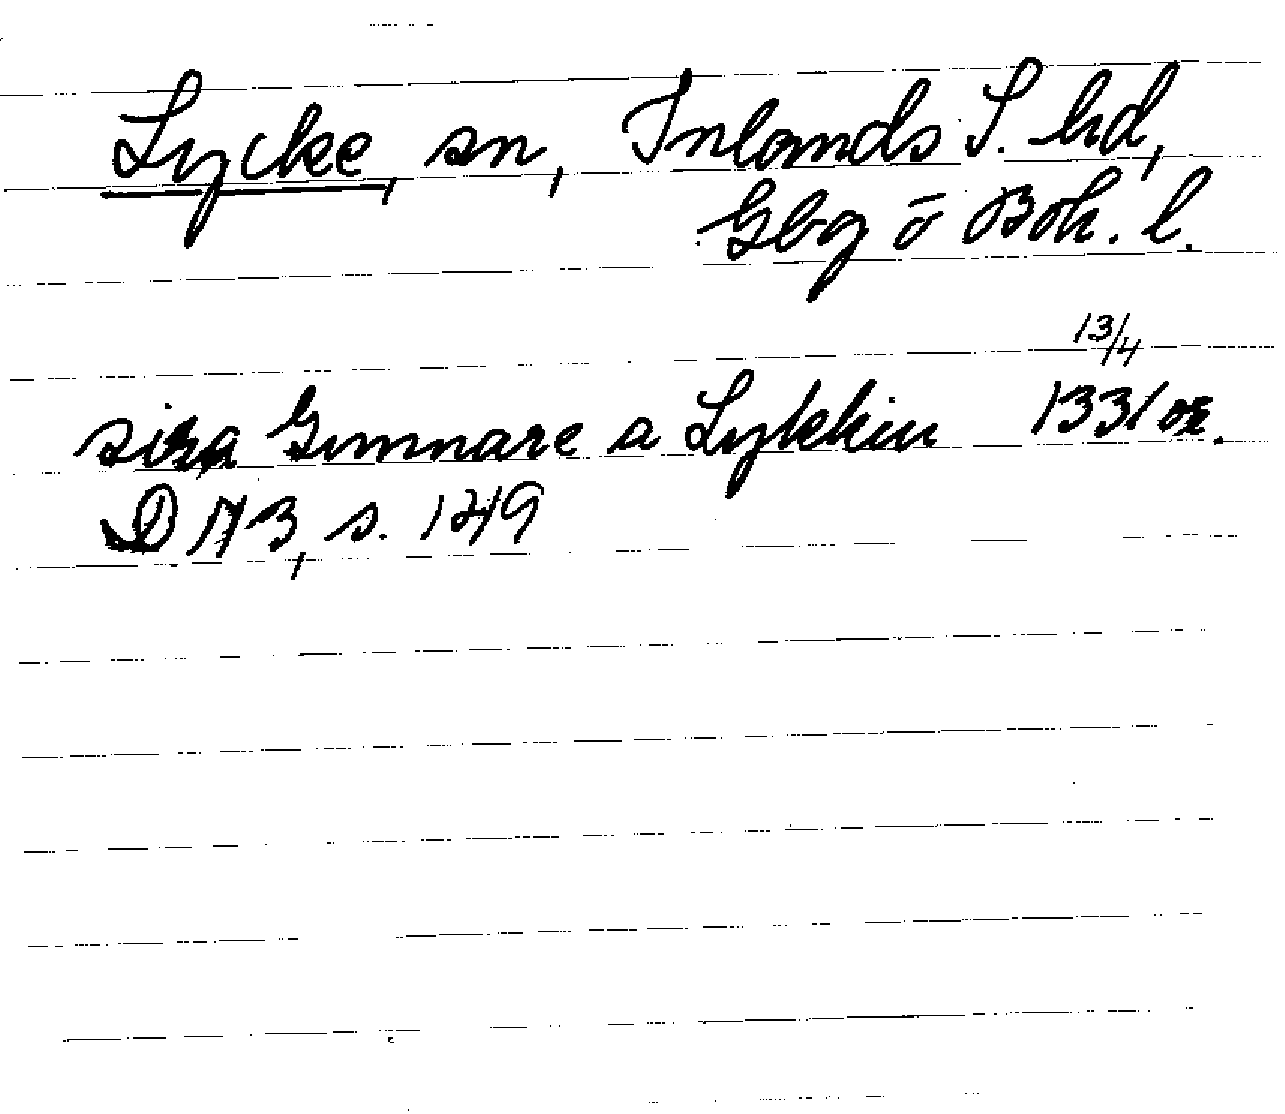 Lycke, sn, Inlands S. hd,
Gbg o Boh. l.
13/4
sira Gunnare a Lykkiu 1331 or.
DN 3, s. 149